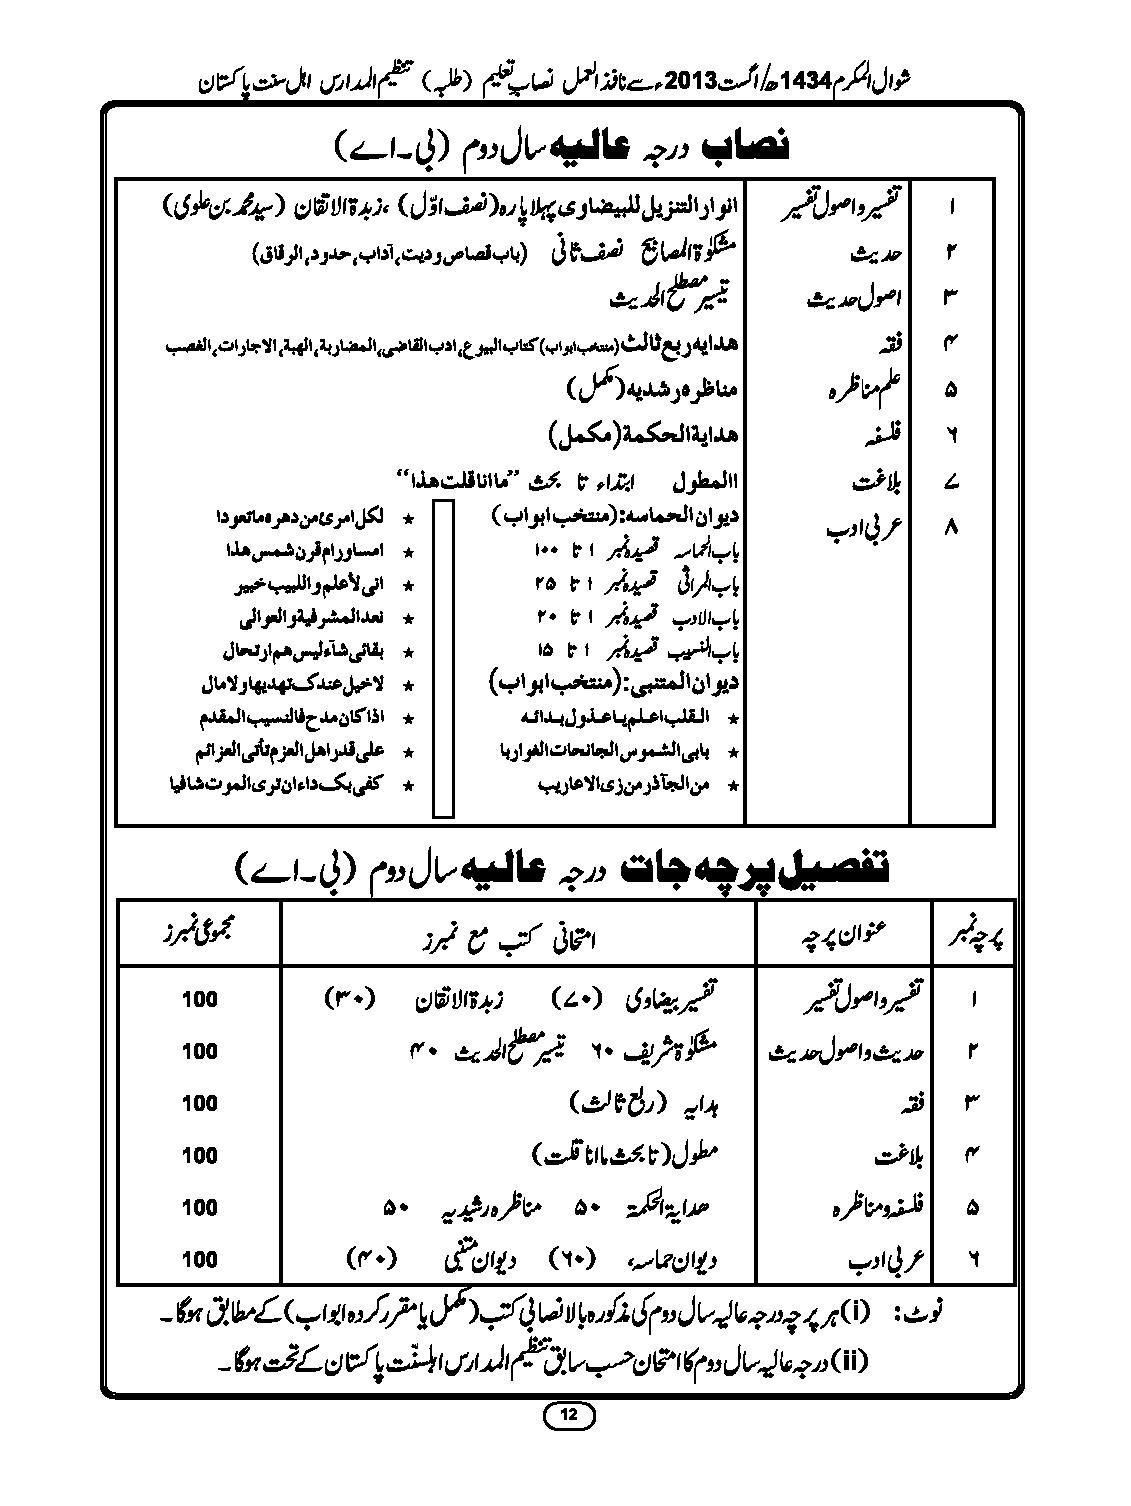 شوال المکرم 1434ھ/اگست 2013ء سے نافذ العمل نصاب تعلیم (طلبہ) تنظیم المدارس اہل سنت پاکستان
نصاب درجہ عالیہ سال دوم (بی۔اے)
۱ تفسیر و اصول تفسیر انوار التنزیل للبیضاوی پہلا پارہ (نصف اوّل)، زبدۃ الاتقان (سید محمد بن علوی)
۲ حدیث مشکوٰۃ المصابیح نصف ثانی (باب قصاص و دیت، آداب، حدود، الرقاق)
۳ اصول حدیث تیسیر مصطلح الحدیث
۴ فقہ ھدایہ ربع ثالث (منتخب ابواب) کتاب البیوع، ادب القاضی، المضاربة، الهبة، الاجارات، الغصب
۵ علم مناظرہ مناظرہ رشدیہ (مکمل)
۶ فلسفہ هداية الحكمة (مکمل)
۷ بلاغت االمطول ابتداء تا بحث ”ما انا قلت هذا“
۸ عربی ادب دیوان الحماسہ: (منتخب ابواب)
باب الحماسہ قصیدہ نمبر ۱ تا ۱۰۰
باب المراثی قصیدہ نمبر ۱ تا ۲۵
باب الادب قصیدہ نمبر ۱ تا ۲۰
باب النسیب قصیدہ نمبر ۱ تا ۱۵
دیوان المتنبی: (منتخب ابواب)
★ القلب اعلم یا عذول بدائه
★ بابی الشموس الجانحات الغواربا
★ من الجآذر من زی الاعاریب
★ لکل امرئ من دهره ما تعودا
★ امساور ام قرن شمس هذا
★ انی لأعلم و اللبیب خبیر
★ نعد المشرفیة و العوالی
★ بقائی شآء لیس هم ارتحال
★ لا خیل عندک تهدیها ولا مال
★ اذا کان مدح فالنسیب المقدم
★ علی قدر اهل العزم تأتی العزائم
★ کفی بک داء ان تری الموت شافیا
تفصیل پرچہ جات درجہ عالیہ سال دوم (بی۔اے)
پرچہ نمبر عنوان پرچہ امتحانی کتب مع نمبرز مجموعی نمبرز
۱ تفسیر و اصول تفسیر تفسیر بیضاوی (۷۰) زبدۃ الاتقان (۳۰) 100
۲ حدیث و اصول حدیث مشکوٰۃ شریف ۶۰ تیسیر مصطلح الحدیث ۴۰ 100
۳ فقہ ہدایہ (ربع ثالث) 100
۴ بلاغت مطول (تا بحث ما انا قلت) 100
۵ فلسفہ و مناظرہ ھدایۃ الحکمۃ ۵۰ مناظرہ رشیدیہ ۵۰ 100
۶ عربی ادب دیوان حماسہ، (۶۰) دیوان متنبی (۴۰) 100
نوٹ: (i) ہر پرچہ درجہ عالیہ سال دوم کی مذکورہ بالا نصابی کتب (مکمل یا مقرر کردہ ابواب) کے مطابق ہوگا۔
(ii) درجہ عالیہ سال دوم کا امتحان حسب سابق تنظیم المدارس اہلسنّت پاکستان کے تحت ہوگا۔
12